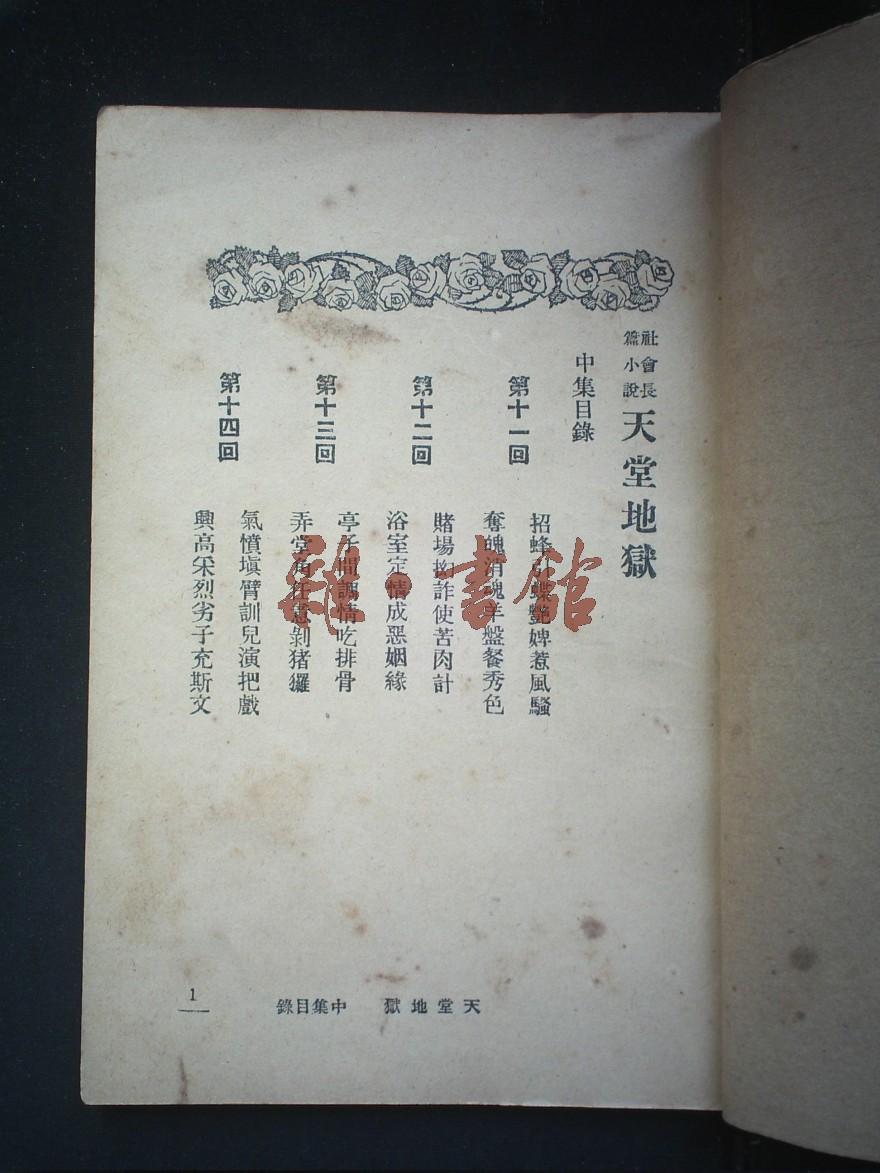 社會長
篇小說
天堂地獄
中集目錄
第十一回
招蜂引蝶艷婢惹風騷
奪魄消魂羊盤餐秀色
第十二回
賭場詐使苦肉計
浴室定情成惡姻緣
第十三回
亭子間調情吃排骨
弄堂角剝猪玀
第十四回
氣憤塡臂訓兒演把戲
興高采烈劣子充斯文
雜·書館
天堂地獄 中集目錄
1